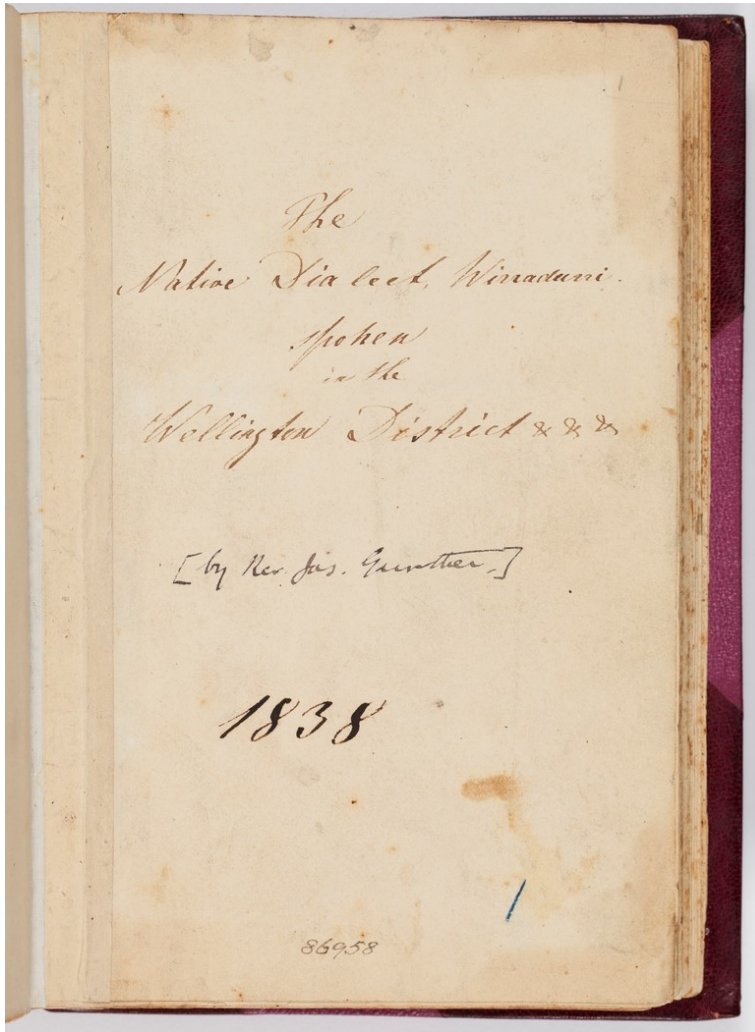 The
Native Dialect, Wirradurri.
spoken
in the
Wellington District & & &
[by Rev. Jas. Gunther.]
1838
86958